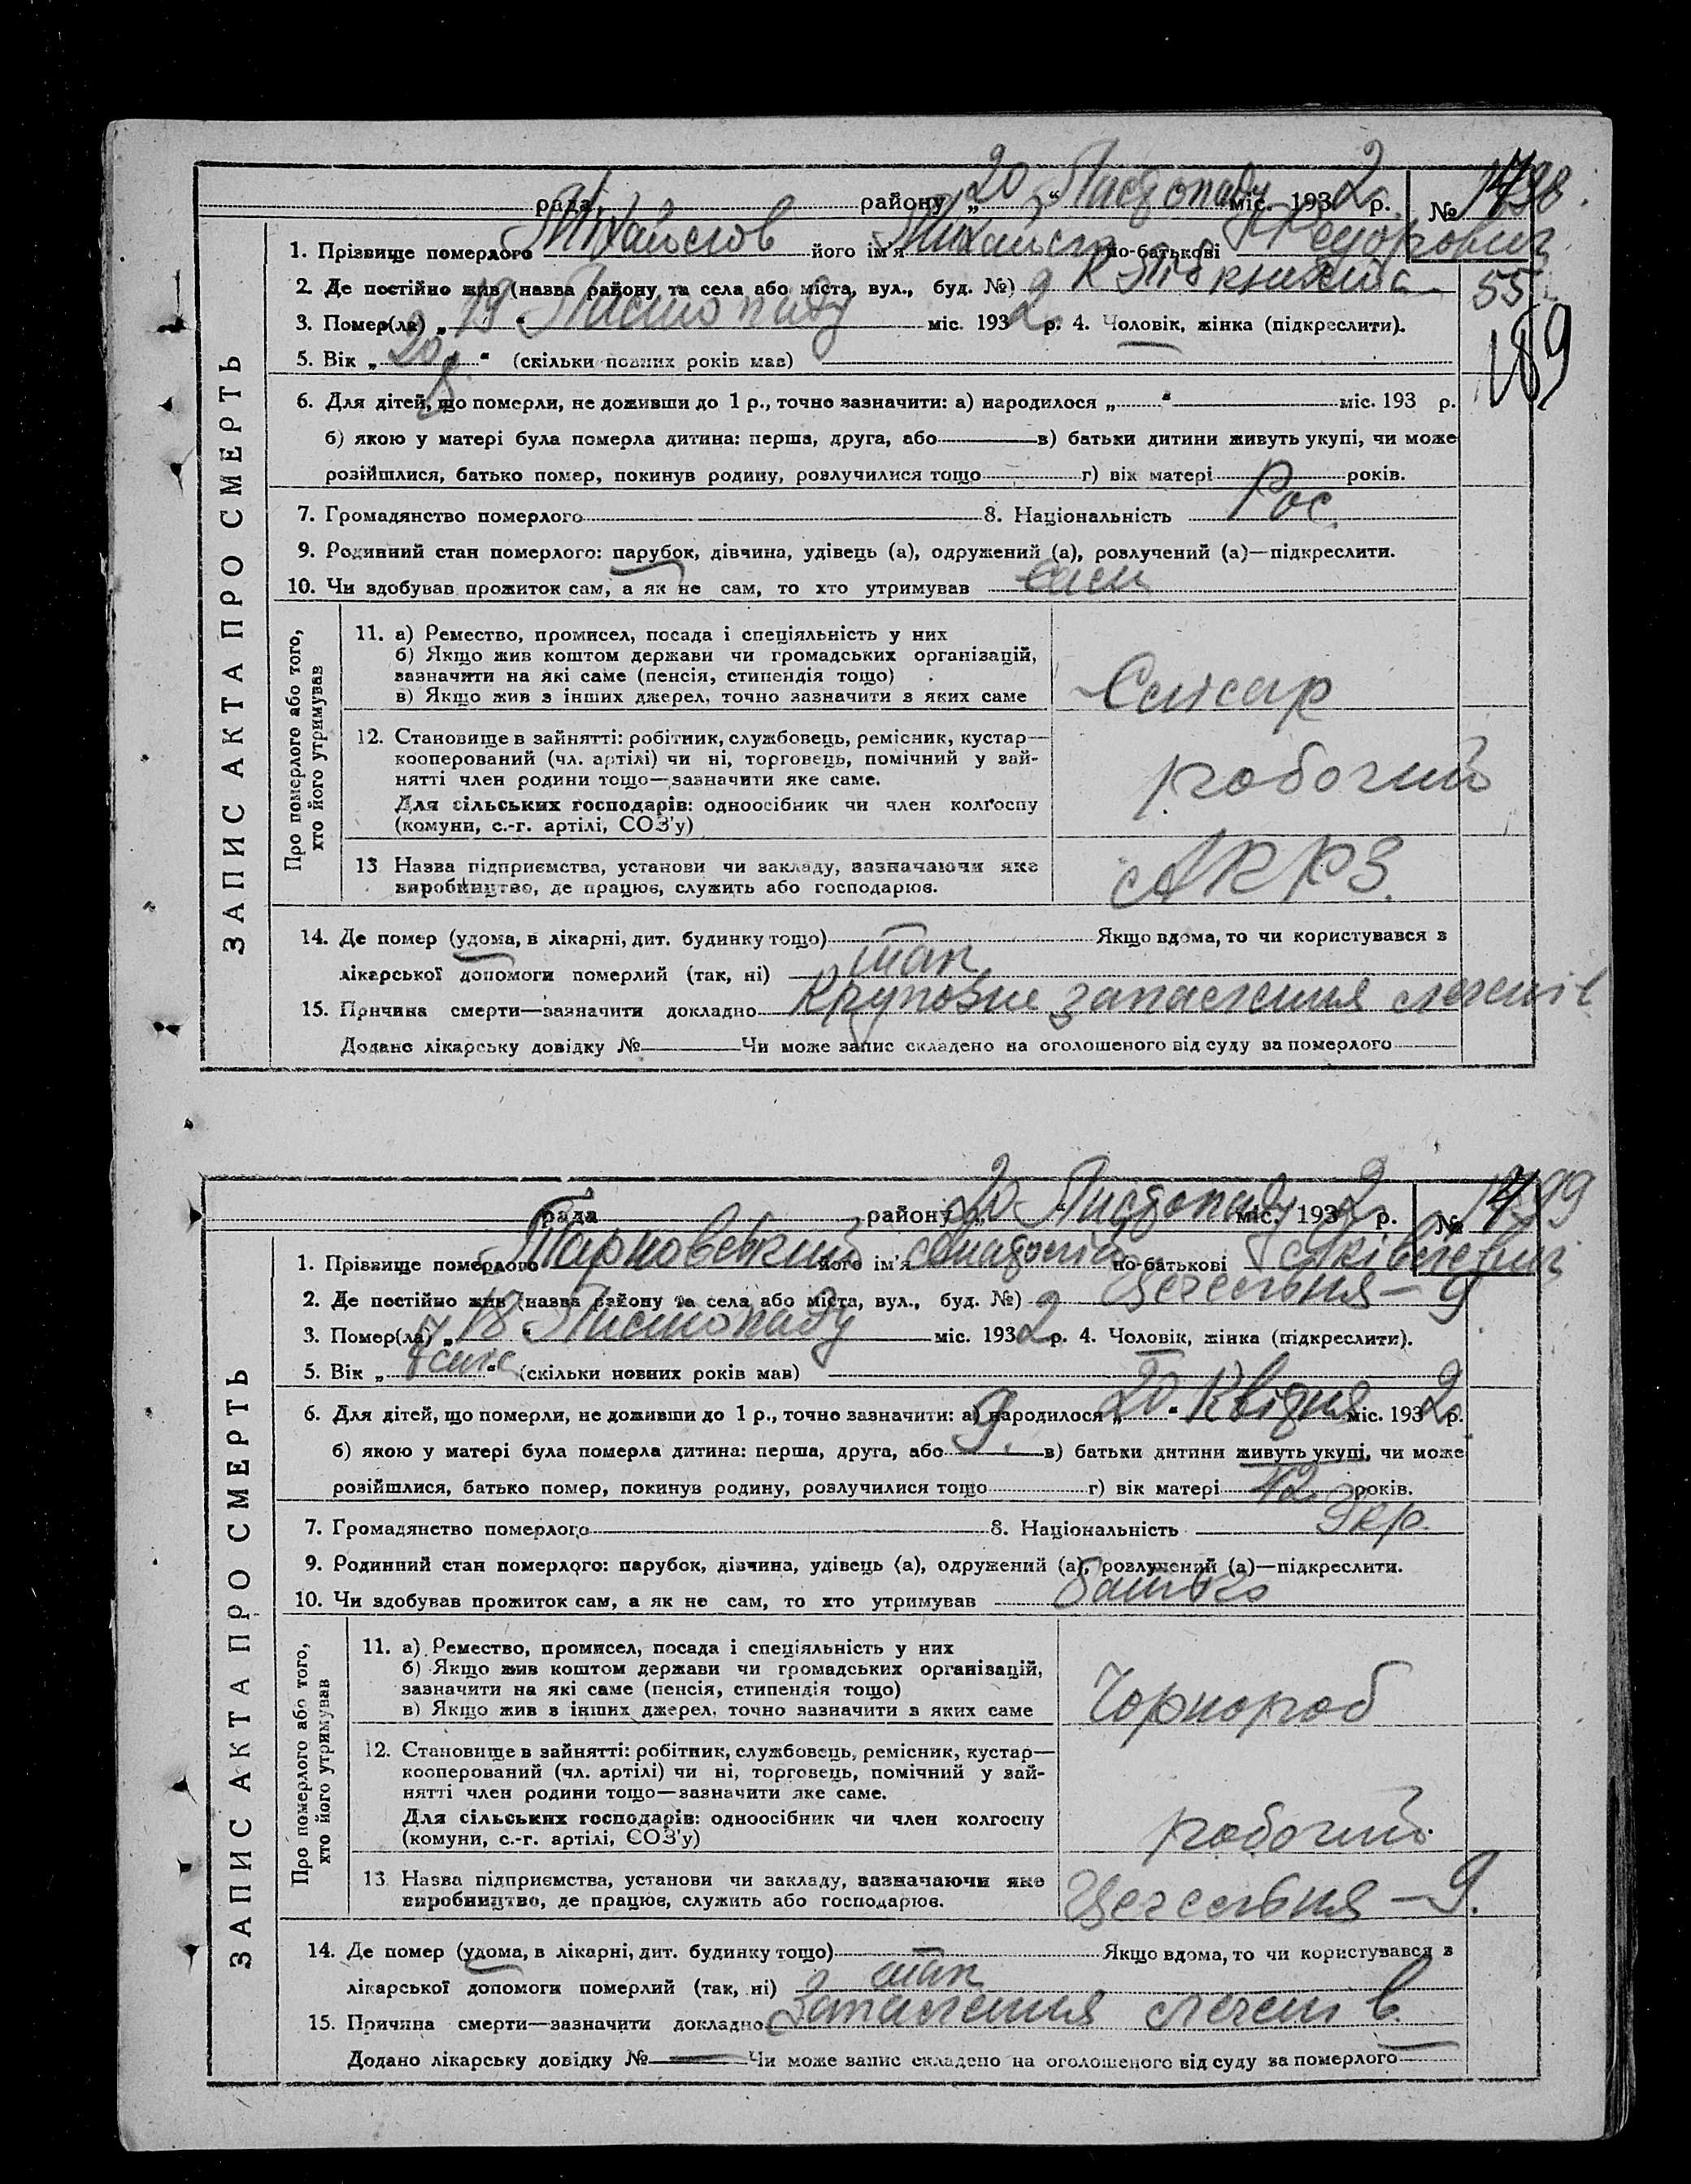 ЗАПИС АКТА ПРО СМЕРТЬ
рада району „20“ Листопаду міс. 1932 р. № 1498.
1. Прізвище померлого Михайлов його ім'я Михайло по-батькові Федорович
2. Де постійно жив (назва району та села або міста, вул., буд. №) 55
3. Помер(ла) „19“ Листопаду міс. 1932 р. 4. Чоловік, жінка (підкреслити).
189
5. Вік „20“ (скільки повних років мав)
6. Для дітей, що померли, не доживши до 1 р., точно зазначити: а) народилося „ “ міс. 193 р.
б) якою у матері була померла дитина: перша, друга, або в) батьки дитини живуть укупі, чи може
розійшлися, батько помер, покинув родину, розлучилися тощо г) вік матері років.
7. Громадянство померлого 8. Національність Рос.
9. Родинний стан померлого: парубок, дівчина, удівець (а), одружений (а), розлучений (а)—підкреслити.
10. Чи здобував прожиток сам, а як не сам, то хто утримував сам
Про померлого або того,
хто його утримував
11. а) Ремество, промисел, посада і спеціяльність у них
б) Якщо жив коштом держави чи громадських організацій,
зазначити на які саме (пенсія, стипендія тощо)
в) Якщо жив з інших джерел, точно зазначити з яких саме
Слісар
12. Становище в зайнятті: робітник, службовець, ремісник, кустар—
кооперований (чл. артілі) чи ні, торговець, помічний у зай-
нятті член родини тощо—зазначити яке саме.
Для сільських господарів: одноосібник чи член колгоспу
(комуни, с.-г. артілі, СОЗ'у)
робочий
13 Назва підприємства, установи чи закладу, зазначаючи яке
виробництво, де працює, служить або господарює.
АРРЗ.
14. Де помер (удома, в лікарні, дит. будинку тощо) Якщо вдома, то чи користувався з
лікарської допомоги померлий (так, ні) так
15. Причина смерти—зазначити докладно Крупозне запалення легенів
Додано лікарську довідку № Чи може запис складено на оголошеного від суду за померлого
ЗАПИС АКТА ПРО СМЕРТЬ
рада району „20“ Листопаду міс. 1932 р. № 1499
1. Прізвище померлого Тарновський його ім'я Анатолій по-батькові
2. Де постійно жив (назва району та села або міста, вул., буд. №) Цегельня – 9
3. Помер(ла) „18“ Листопаду міс. 1932 р. 4. Чоловік, жінка (підкреслити).
5. Вік „7 міс“ (скільки повних років мав)
6. Для дітей, що померли, не доживши до 1 р., точно зазначити: а) народилося „20“ Квітня міс. 1932 р.
б) якою у матері була померла дитина: перша, друга, або 9. в) батьки дитини живуть укупі, чи може
розійшлися, батько помер, покинув родину, розлучилися тощо г) вік матері 42 років.
7. Громадянство померлого 8. Національність Укр.
9. Родинний стан померлого: парубок, дівчина, удівець (а), одружений (а), розлучений (а)—підкреслити.
10. Чи здобував прожиток сам, а як не сам, то хто утримував батько
Про померлого або того,
хто його утримував
11. а) Ремество, промисел, посада і спеціяльність у них
б) Якщо жив коштом держави чи громадських організацій,
зазначити на які саме (пенсія, стипендія тощо)
в) Якщо жив з інших джерел, точно зазначити з яких саме
Чорнороб
12. Становище в зайнятті: робітник, службовець, ремісник, кустар—
кооперований (чл. артілі) чи ні, торговець, помічний у зай-
нятті член родини тощо—зазначити яке саме.
Для сільських господарів: одноосібник чи член колгоспу
(комуни, с.-г. артілі, СОЗ'у)
робочий
13. Назва підприємства, установи чи закладу, зазначаючи яке
виробництво, де працює, служить або господарює.
Цегельня – 9.
14. Де помер (удома, в лікарні, дит. будинку тощо) Якщо вдома, то чи користувався з
лікарської допомоги померлий (так, ні) так
15. Причина смерти—зазначити докладно Запалення легенів.
Додано лікарську довідку № Чи може запис складено на оголошеного від суду за померлого